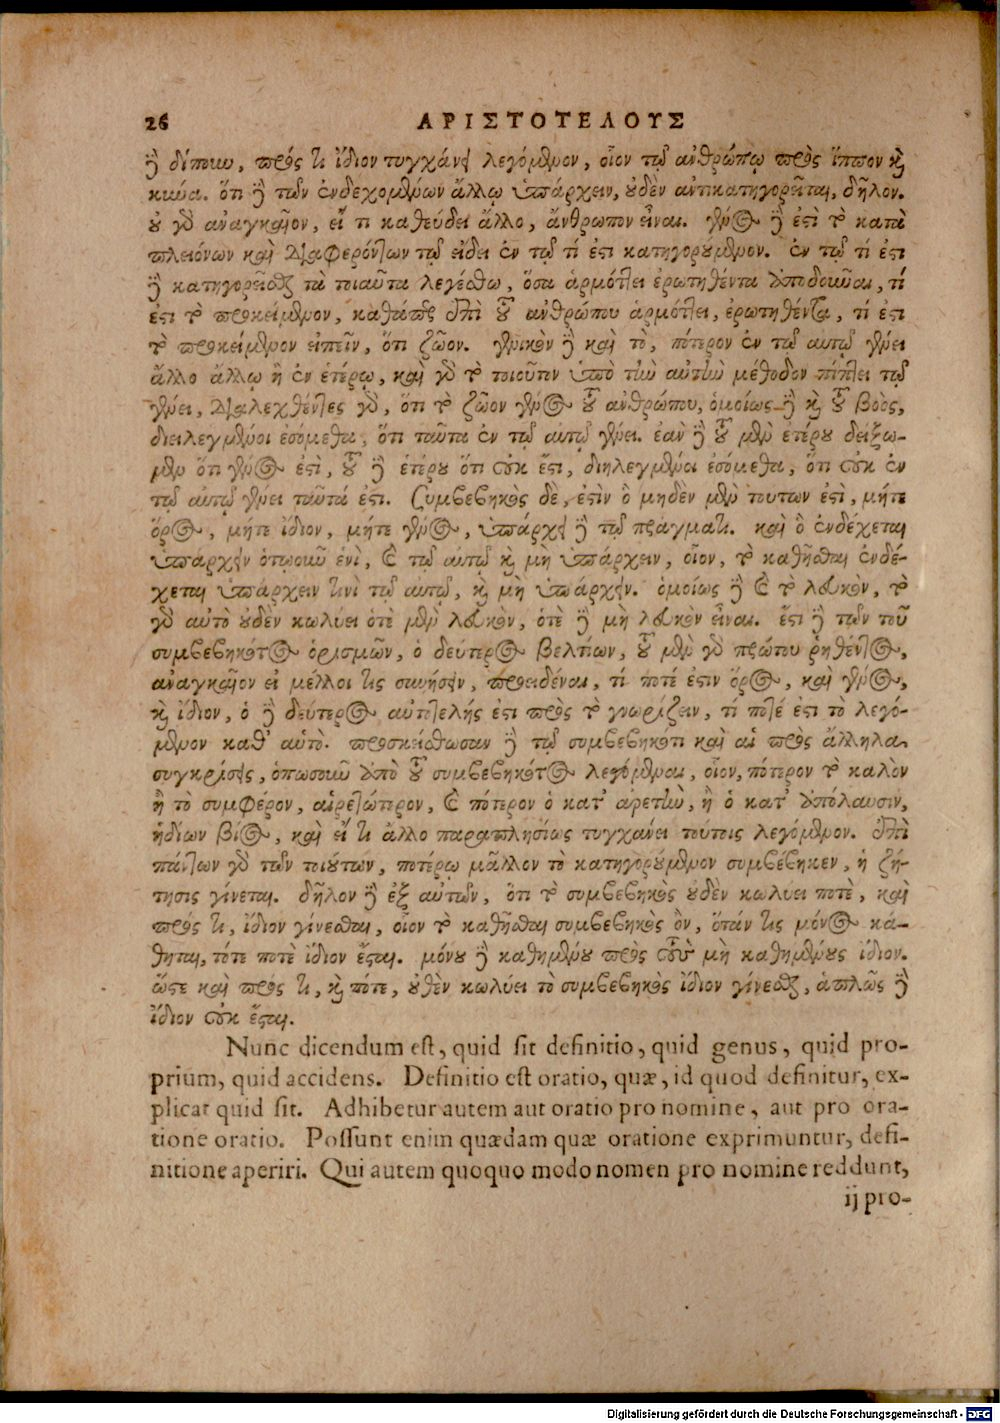 26 ΑΡΙΣΤΟΤΕΛΟΥΣ
ἢ δίπουν, πρός τι ἴδιον τυγχάνει λεγόμενον, οἷον τῷ ἀνθρώπῳ πρὸς ἵππον καὶ
κύνα. ὅτι δὲ τῶν ἐνδεχομένων ἄλλῳ ὑπάρχειν, οὐδὲν ἀντικατηγορεῖται, δῆλον.
οὐ γὰρ ἀναγκαῖον, εἴ τι καθεύδει ἄλλο, ἄνθρωπον εἶναι. γένος δέ ἐστι τὸ κατὰ
πλειόνων καὶ διαφερόντων τῷ εἴδει ἐν τῷ τί ἐστι κατηγορούμενον. ἐν τῷ τί ἐστι
δὲ κατηγορεῖσθαι τὰ τοιαῦτα λεγέσθω, ὅσα ἁρμόττει ἐρωτηθέντα ἀποδοῦναι, τί
ἐστι τὸ προκείμενον, καθάπερ ἐπὶ τοῦ ἀνθρώπου ἁρμόττει, ἐρωτηθέντα, τί ἐστι
τὸ προκείμενον εἰπεῖν, ὅτι ζῶον. γενικὸν δὲ καὶ τὸ, πότερον ἐν τῷ αὐτῷ γένει
ἄλλο ἄλλῳ ἢ ἐν ἑτέρῳ, καὶ γὰρ τὸ τοιοῦτον ὑπὸ τὴν αὐτὴν μέθοδον πίπτει τῷ
γένει, διαλεχθέντες γὰρ, ὅτι τὸ ζῶον γένος τοῦ ἀνθρώπου, ὁμοίως δὲ καὶ τοῦ βοὸς,
διειλεγμένοι ἐσόμεθα, ὅτι ταῦτα ἐν τῷ αὐτῷ γένει. ἐὰν δὲ τοῦ μὲν ἑτέρου δείξω-
μεν ὅτι γένος ἐστὶ, τοῦ δὲ ἑτέρου ὅτι οὐκ ἔστι, διηλεγμένοι ἐσόμεθα, ὅτι οὐκ ἐν
τῷ αὐτῷ γένει ταῦτά ἐστι. Συμβεβηκὸς δὲ, ἐστὶν ὃ μηδὲν μὲν τούτων ἐστὶ, μήτε
ὅρος, μήτε ἴδιον, μήτε γένος, ὑπάρχει δὲ τῷ πράγματι. καὶ ὃ ἐνδέχεται
ὑπάρχειν ὁτῳοῦν ἑνὶ, καὶ τῷ αὐτῷ καὶ μὴ ὑπάρχειν, οἷον, τὸ καθῆσθαι ἐνδέ-
χεται ὑπάρχειν τινὶ τῷ αὐτῷ, καὶ μὴ ὑπάρχειν. ὁμοίως δὲ καὶ τὸ λευκὸν, τὸ
γὰρ αὐτὸ οὐδὲν κωλύει ὁτὲ μὲν λευκὸν, ὁτὲ δὲ μὴ λευκὸν εἶναι. ἔστι δὲ τῶν τοῦ
συμβεβηκότος ὁρισμῶν, ὁ δεύτερος βελτίων, τοῦ μὲν γὰρ πρώτου ῥηθέντος,
ἀναγκαῖον εἰ μέλλοι τις συνήσειν, προειδέναι, τί ποτέ ἐστιν ὅρος, καὶ γένος,
καὶ ἴδιον, ὁ δὲ δεύτερος αὐτοτελής ἐστι πρὸς τὸ γνωρίζειν, τί ποτέ ἐστι τὸ λεγό-
μενον καθ' αὑτό. προσκείσθωσαν δὲ τῷ συμβεβηκότι καὶ αἱ πρὸς ἄλληλα
συγκρίσεις, ὁπωσοῦν ἀπὸ τοῦ συμβεβηκότος λεγόμεναι, οἷον, πότερον τὸ καλὸν
ἢ τὸ συμφέρον, αἱρετώτερον, καὶ πότερον ὁ κατ' ἀρετὴν, ἢ ὁ κατ' ἀπόλαυσιν,
ἡδίων βίος, καὶ εἴ τι ἄλλο παραπλησίως τυγχάνει τούτοις λεγόμενον. ἐπὶ
πάντων γὰρ τῶν τοιούτων, ποτέρῳ μᾶλλον τὸ κατηγορούμενον συμβέβηκεν, ἡ ζή-
τησις γίνεται. δῆλον δὲ ἐξ αὐτῶν, ὅτι τὸ συμβεβηκὸς οὐδὲν κωλύει ποτὲ, καὶ
πρός τι, ἴδιον γίνεσθαι, οἷον τὸ καθῆσθαι συμβεβηκὸς ὂν, ὅταν τις μόνος κά-
θηται, τότε ποτὲ ἴδιον ἔσται. μόνου δὲ καθημένου πρὸς τοὺς μὴ καθημένους ἴδιον.
ὥστε καὶ πρός τι, καὶ πότε, οὐθὲν κωλύει τὸ συμβεβηκὸς ἴδιον γίνεσθαι, ἁπλῶς δὲ
ἴδιον οὐκ ἔσται.
Nunc dicendum est, quid sit definitio, quid genus, quid pro-
prium, quid accidens. Definitio est oratio, quæ, id quod definitur, ex-
plicat quid sit. Adhibetur autem aut oratio pro nomine, aut pro ora-
tione oratio. Possunt enim quædam quæ oratione exprimuntur, defi-
nitione aperiri. Qui autem quoquo modo nomen pro nomine reddunt,
ij pro-
Digitalisierung gefördert durch die Deutsche Forschungsgemeinschaft - DFG